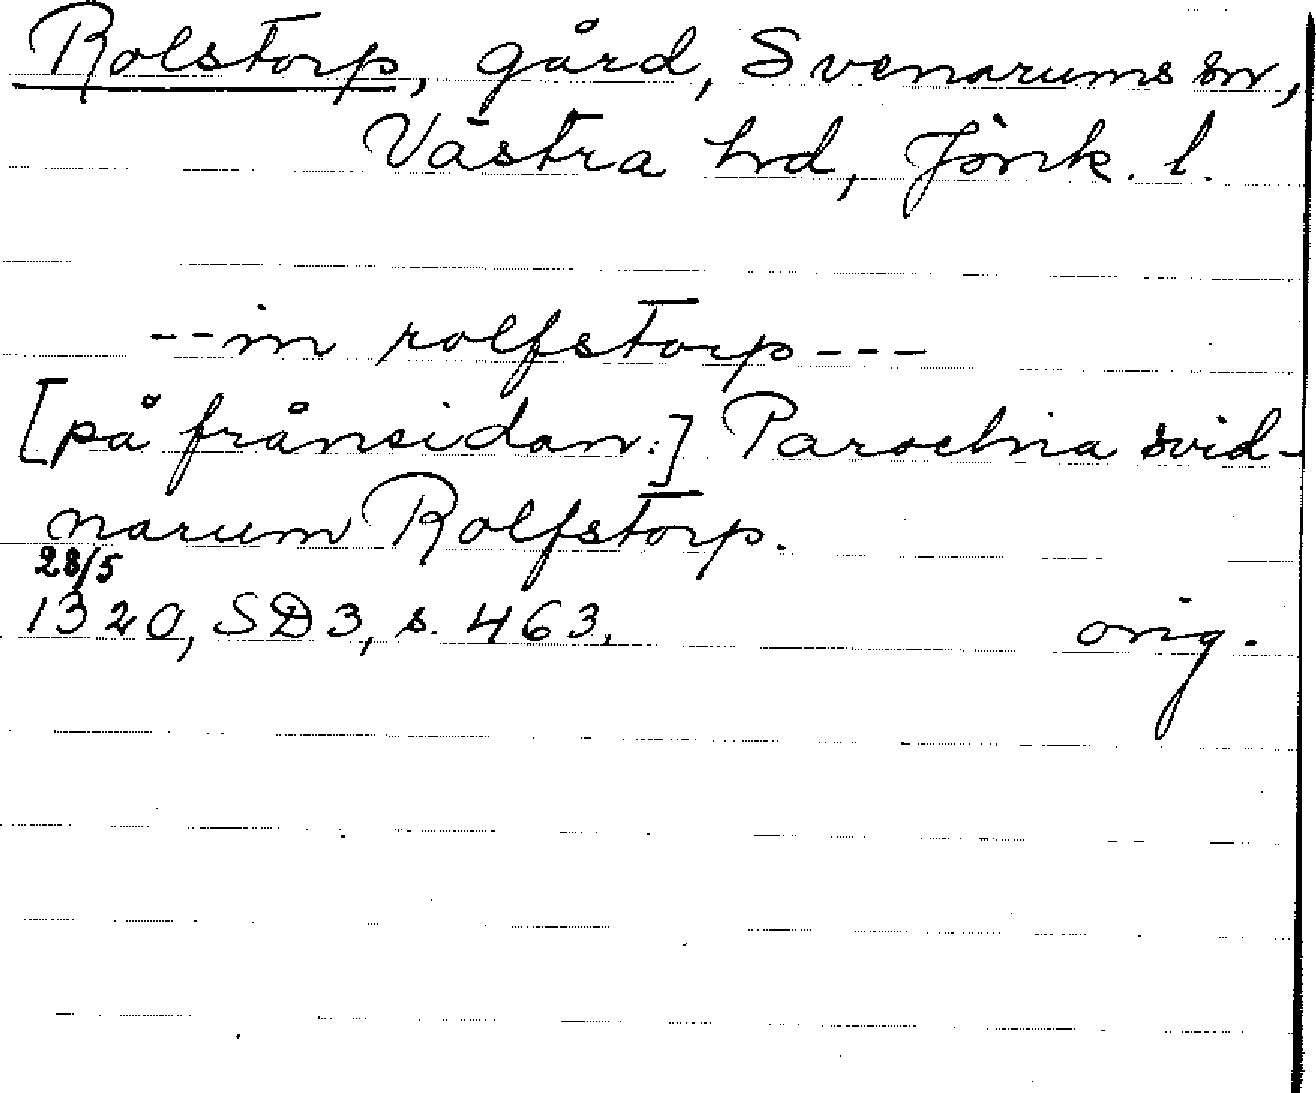 Rolstorp, gård, Svenarums sn,
Västra hrd, Jönk. l.
--in rolfstorp---
[på frånsidan:] Parochia svid-
narum Rolfstorp.
28/5
1320, SD3, s. 463.  orig.